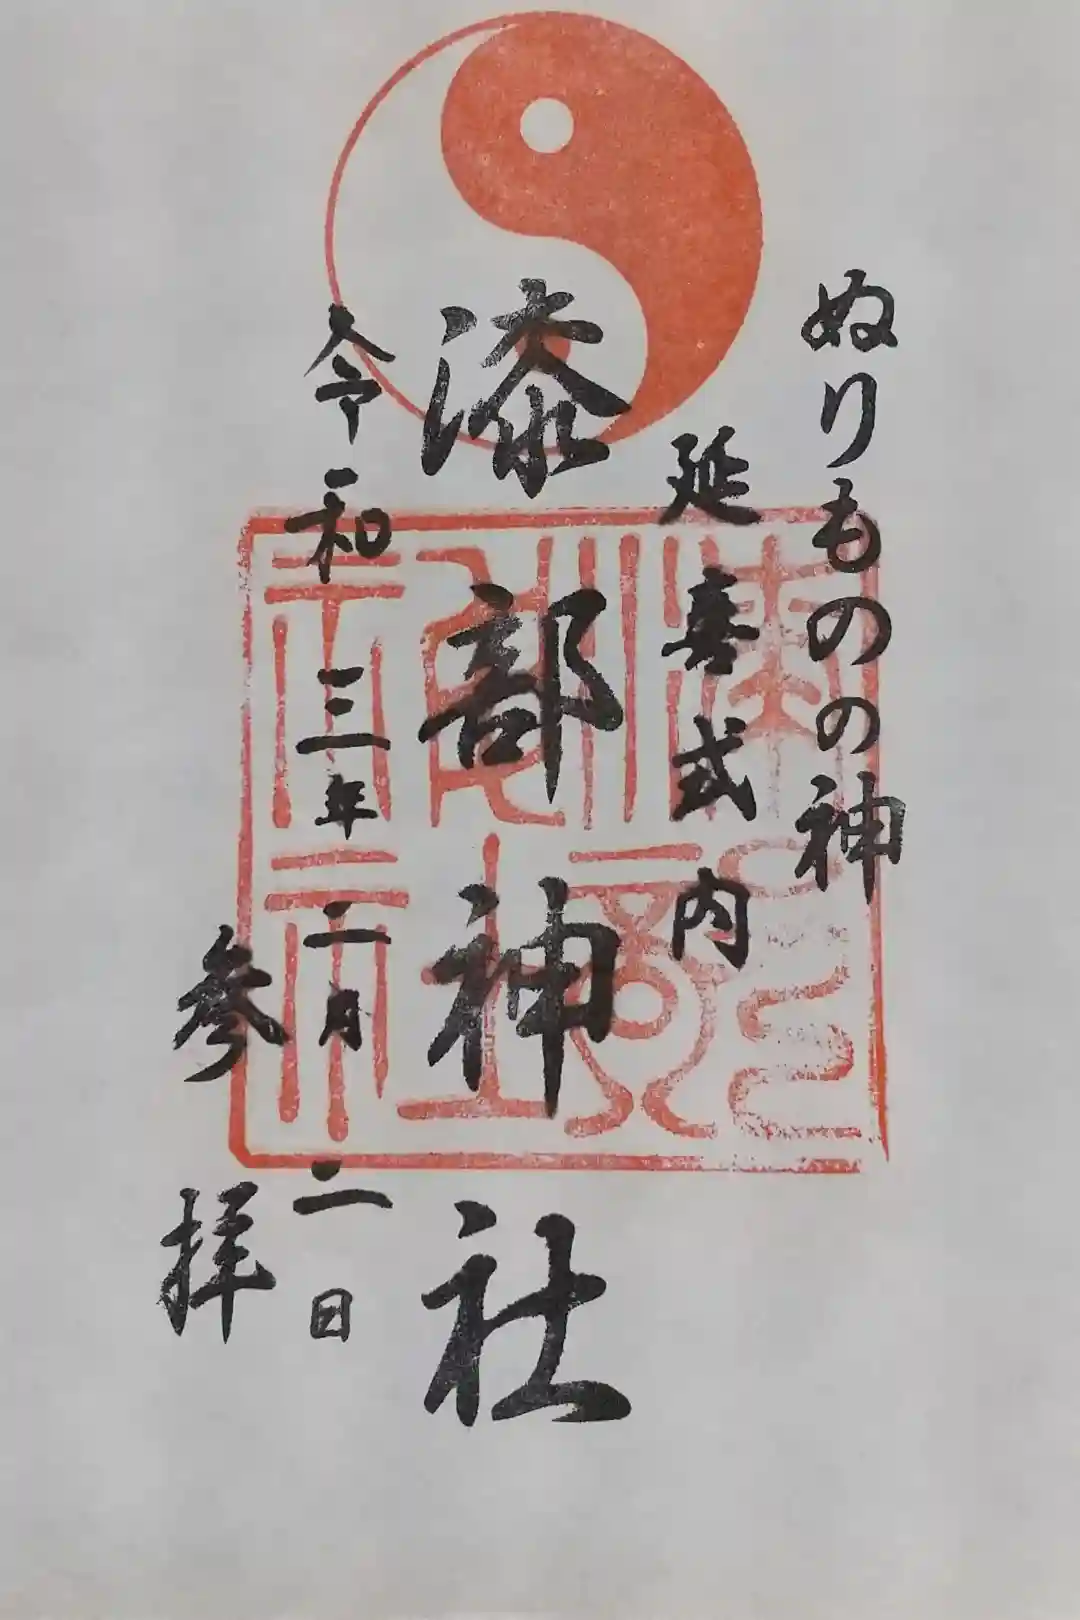 ぬりものの神
延喜式内
漆部神社
令和三年二月二日
参拝